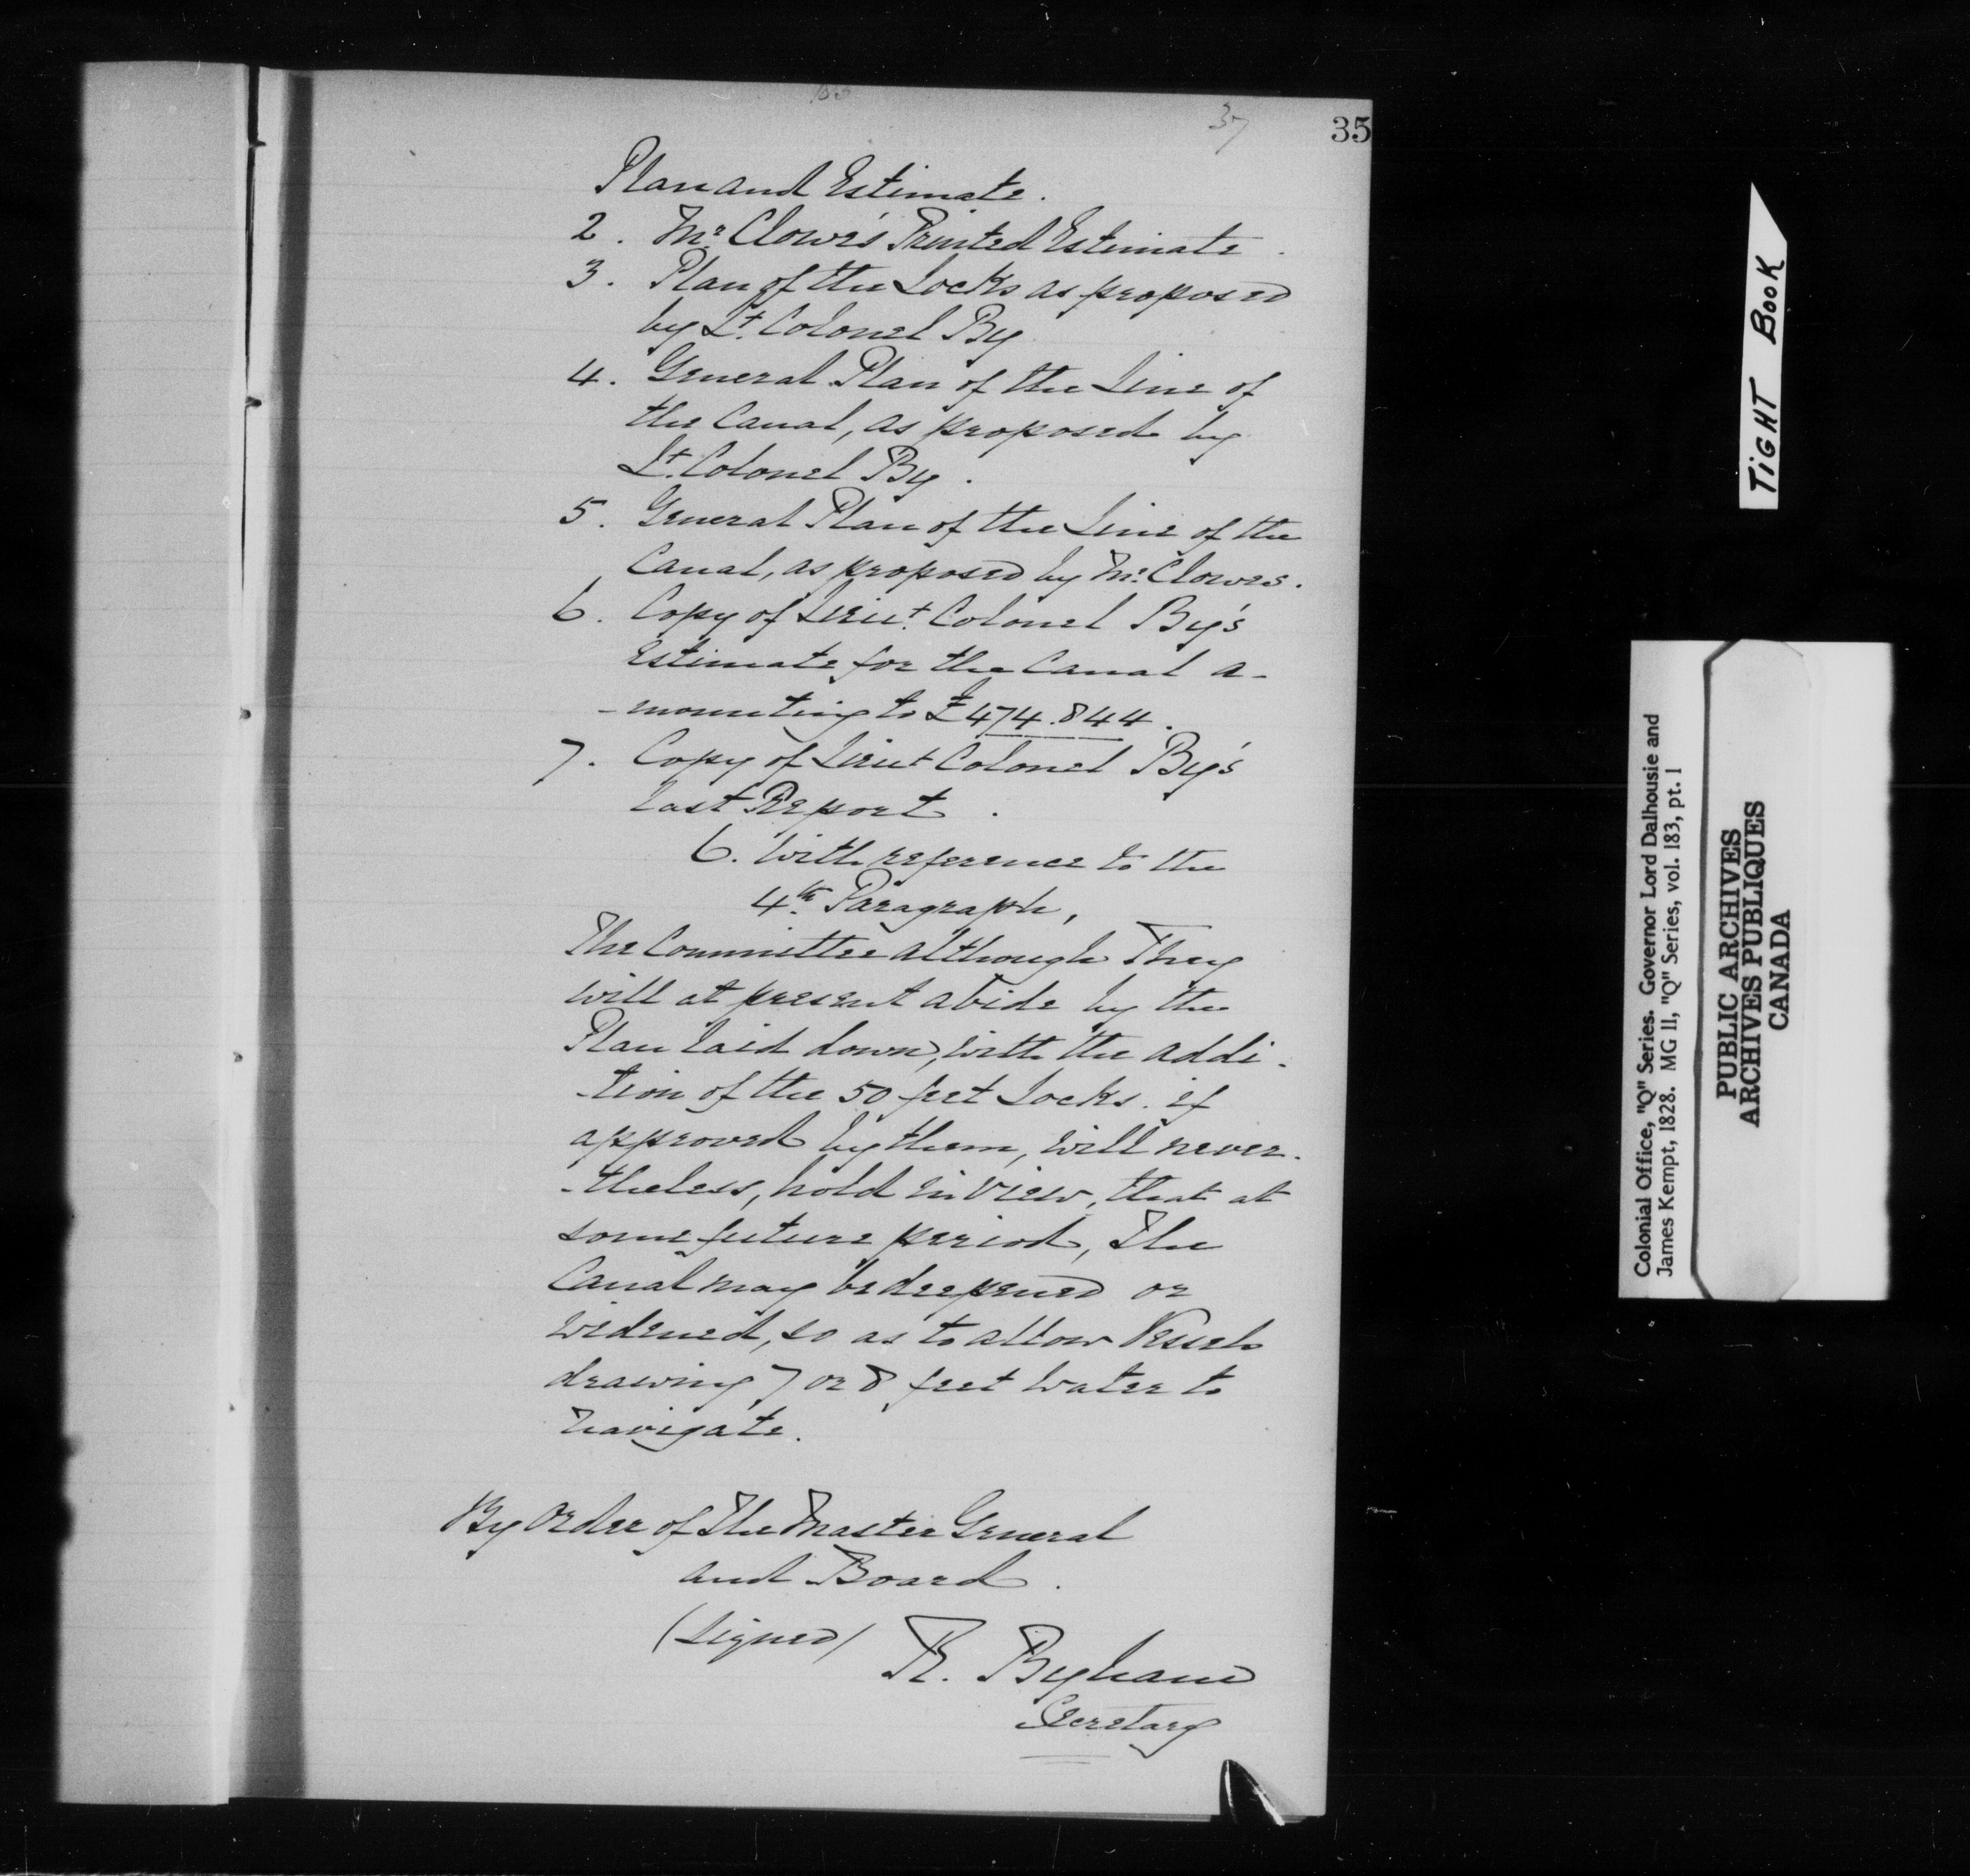 37
35
Plan and Estimate.
2. Mr Clowes's Printed Estimate.
3. Plan of the Locks as proposed
by Lt. Colonel By
4. General Plan of the Line of
the Canal, as proposed by
Lt. Colonel By.
5. General Plan of the Line of the
Canal, as proposed by Mr. Clowes.
6. Copy of Lieut. Colonel By's
Estimate for the Canal a-
-mounting to £474.844.
7. Copy of Lieut Colonel By's
last Report.
6. With reference to the
4th Paragraph,
The Committee although They
will at present abide by the
Plan laid down, with the addi-
-tion of the 50 feet Locks. if
approved by them, will never-
-theless, hold in view, that at
some future period, The
Canal may be deepened or
widened, so as to allow Vessels
drawing 7 or 8 feet water to
navigate.
By Order of The Master General
and Board.
(Signed) R. Byham
Secretary
TIGHT BOOK
Colonial Office, "Q" Series. Governor Lord Dalhousie and
James Kempt, 1828. MG 11, "Q" Series, vol. 183, pt. 1
PUBLIC ARCHIVES
ARCHIVES PUBLIQUES
CANADA